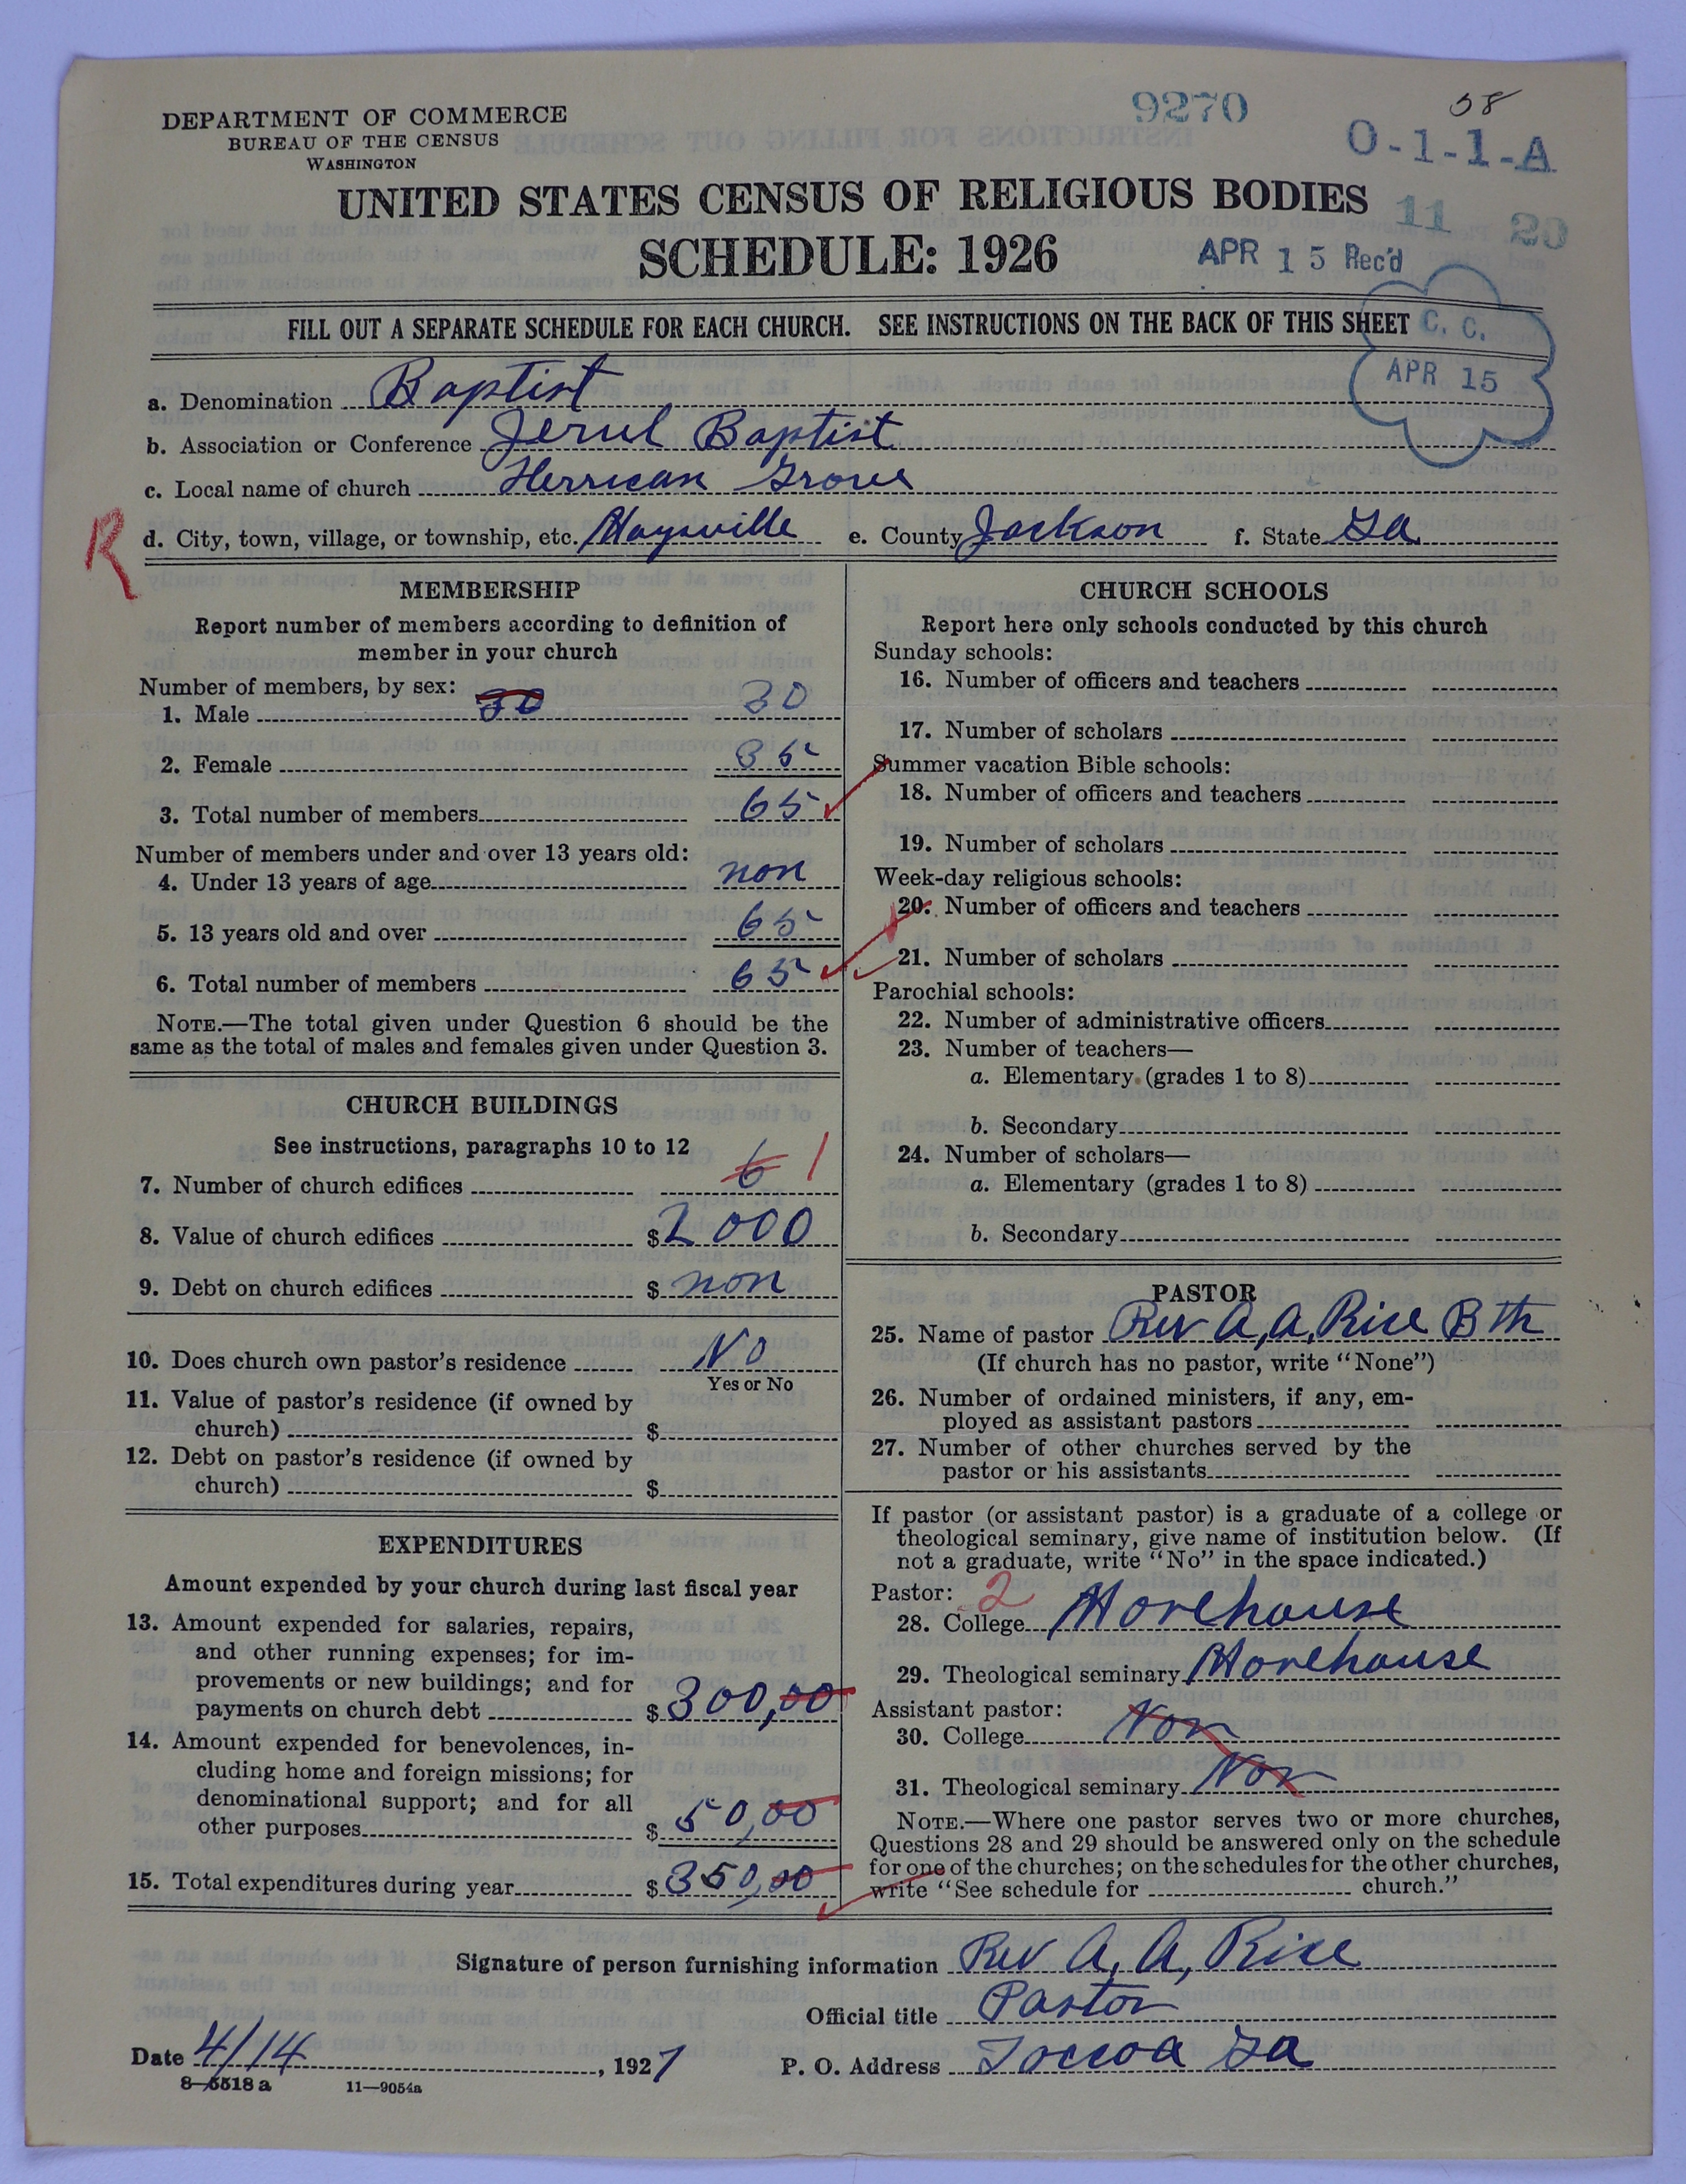 DEPARTMENT OF COMMERCE
BUREAU OF THE CENSUS
WASHINGTON
9270
58
O-1-1-A
UNITED STATES CENSUS OF RELIGIOUS BODIES
11 20
SCHEDULE: 1926
APR 15 Rec'd
FILL OUT A SEPARATE SCHEDULE FOR EACH CHURCH. SEE INSTRUCTIONS ON THE BACK OF THIS SHEET
C. C.
APR 15
a. Denomination Baptist
b. Association or Conference Jerul Baptist
c. Local name of church Herrican Grove
R
d. City, town, village, or township, etc. Maysville e. County Jackson f. State Ga
MEMBERSHIP
Report number of members according to definition of
member in your church
Number of members, by sex:
1. Male 30 30
2. Female 35
3. Total number of members 65
Number of members under and over 13 years old:
4. Under 13 years of age non
5. 13 years old and over 65
6. Total number of members 65
NOTE.—The total given under Question 6 should be the
same as the total of males and females given under Question 3.
CHURCH BUILDINGS
See instructions, paragraphs 10 to 12
7. Number of church edifices 6 1
8. Value of church edifices $2000
9. Debt on church edifices $ non
10. Does church own pastor's residence No
Yes or No
11. Value of pastor's residence (if owned by
church) $
12. Debt on pastor's residence (if owned by
church) $
EXPENDITURES
Amount expended by your church during last fiscal year
13. Amount expended for salaries, repairs,
and other running expenses; for im-
provements or new buildings; and for
payments on church debt $300,00
14. Amount expended for benevolences, in-
cluding home and foreign missions; for
denominational support; and for all
other purposes $ 50,00
15. Total expenditures during year $350,00
CHURCH SCHOOLS
Report here only schools conducted by this church
Sunday schools:
16. Number of officers and teachers
17. Number of scholars
Summer vacation Bible schools:
18. Number of officers and teachers
19. Number of scholars
Week-day religious schools:
20. Number of officers and teachers
21. Number of scholars
Parochial schools:
22. Number of administrative officers
23. Number of teachers—
a. Elementary (grades 1 to 8)
b. Secondary
24. Number of scholars—
a. Elementary (grades 1 to 8)
b. Secondary
PASTOR
25. Name of pastor Rev A, A, Rice B th
(If church has no pastor, write "None")
26. Number of ordained ministers, if any, em-
ployed as assistant pastors
27. Number of other churches served by the
pastor or his assistants
If pastor (or assistant pastor) is a graduate of a college or
theological seminary, give name of institution below. (If
not a graduate, write "No" in the space indicated.)
Pastor: 2
28. College Morehouse
29. Theological seminary Morehouse
Assistant pastor:
30. College Non
31. Theological seminary Non
NOTE.—Where one pastor serves two or more churches,
Questions 28 and 29 should be answered only on the schedule
for one of the churches; on the schedules for the other churches,
write "See schedule for church."
Signature of person furnishing information Rev A, A, Rice
Official title Pastor
Date 4/14, 1927 P. O. Address Toccoa Ga
8-5518 a 11—9054a